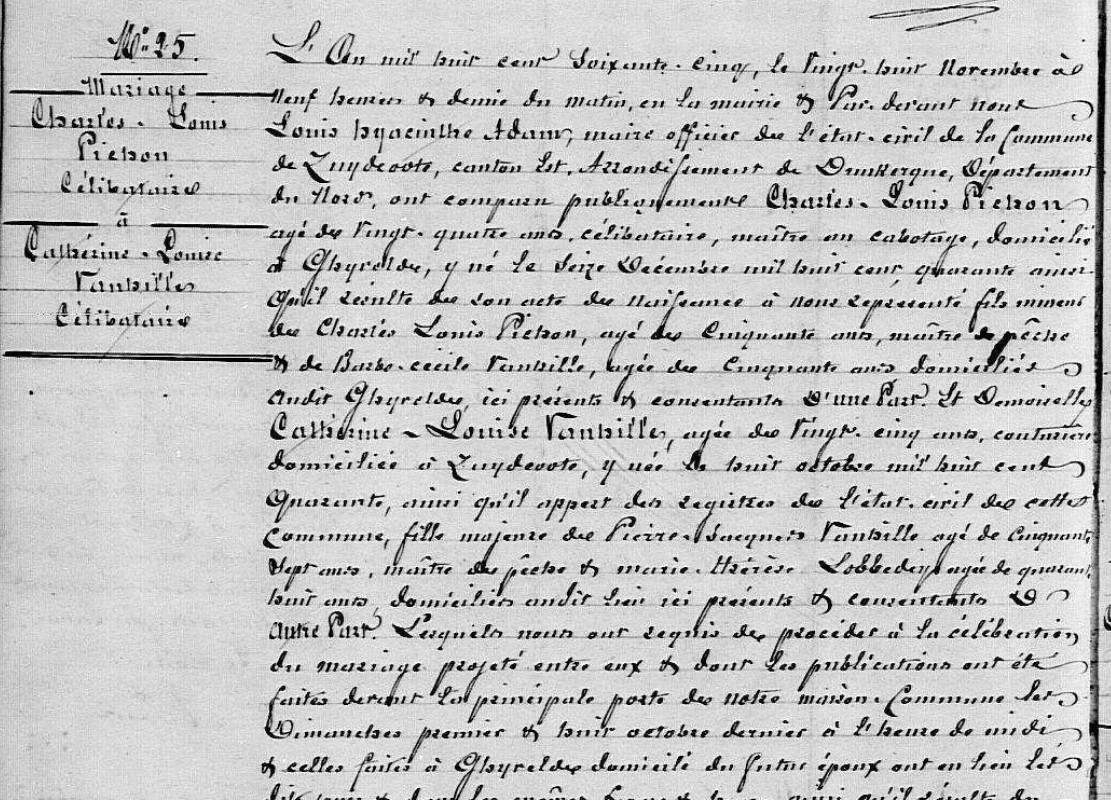 N° 25.
Mariage
Charles - Louis
Pichon
Célibataire
à
Cathérine - Louise
Vanhille
Célibataire
L'An mil huit cent Soixante-cinq, le vingt-huit Novembre à
neuf heures & demie du matin, en la mairie & Par-devant nous
Louis hyacinthe Adam, maire officier de l'état-civil de la Commune
de Zuydcoote, canton Est, Arrondissement de Dunkerque, Département
du Nord, ont comparu publiquement Charles-Louis Pichon
agé de Vingt-quatre ans, célibataire, maître au cabotage, domicilié
à Ghyvelde, y né le Seize Décembre mil huit cent quarante ainsi
qu'il résulte de son acte de naissance à nous représenté fils mineur
de Charles Louis Pichon, agé de Cinquante ans, maître de pêche
& de Barbe-cécile Vanhille, agée de Cinquante ans domiciliés
audit Ghyvelde, ici présents & consentants D'une Part. Et Demoiselle
Cathérine - Louise Vanhille, agée de Vingt-cinq ans, couturière
domiciliée à Zuydcoote, y née le huit octobre mil huit cent
quarante, ainsi qu'il appert des registres de l'état-civil de cette
Commune, fille majeure de Pierre-Jacques Vanhille agé de cinquante
sept ans, maître de pêche & marie-thérèse Lobbedey agée de quarante
huit ans, domiciliés audit lieu ici présents & consentants D'
Autre Part. Lesquels nous ont requis de procéder à la célébration
du mariage projeté entre eux & dont les publications ont été
faites devant la principale porte de notre maison-Commune les
Dimanches premier & huit octobre dernier à l'heure de midi
& celles faites à Ghyvelde domicilé du futur époux ont eu lieu les